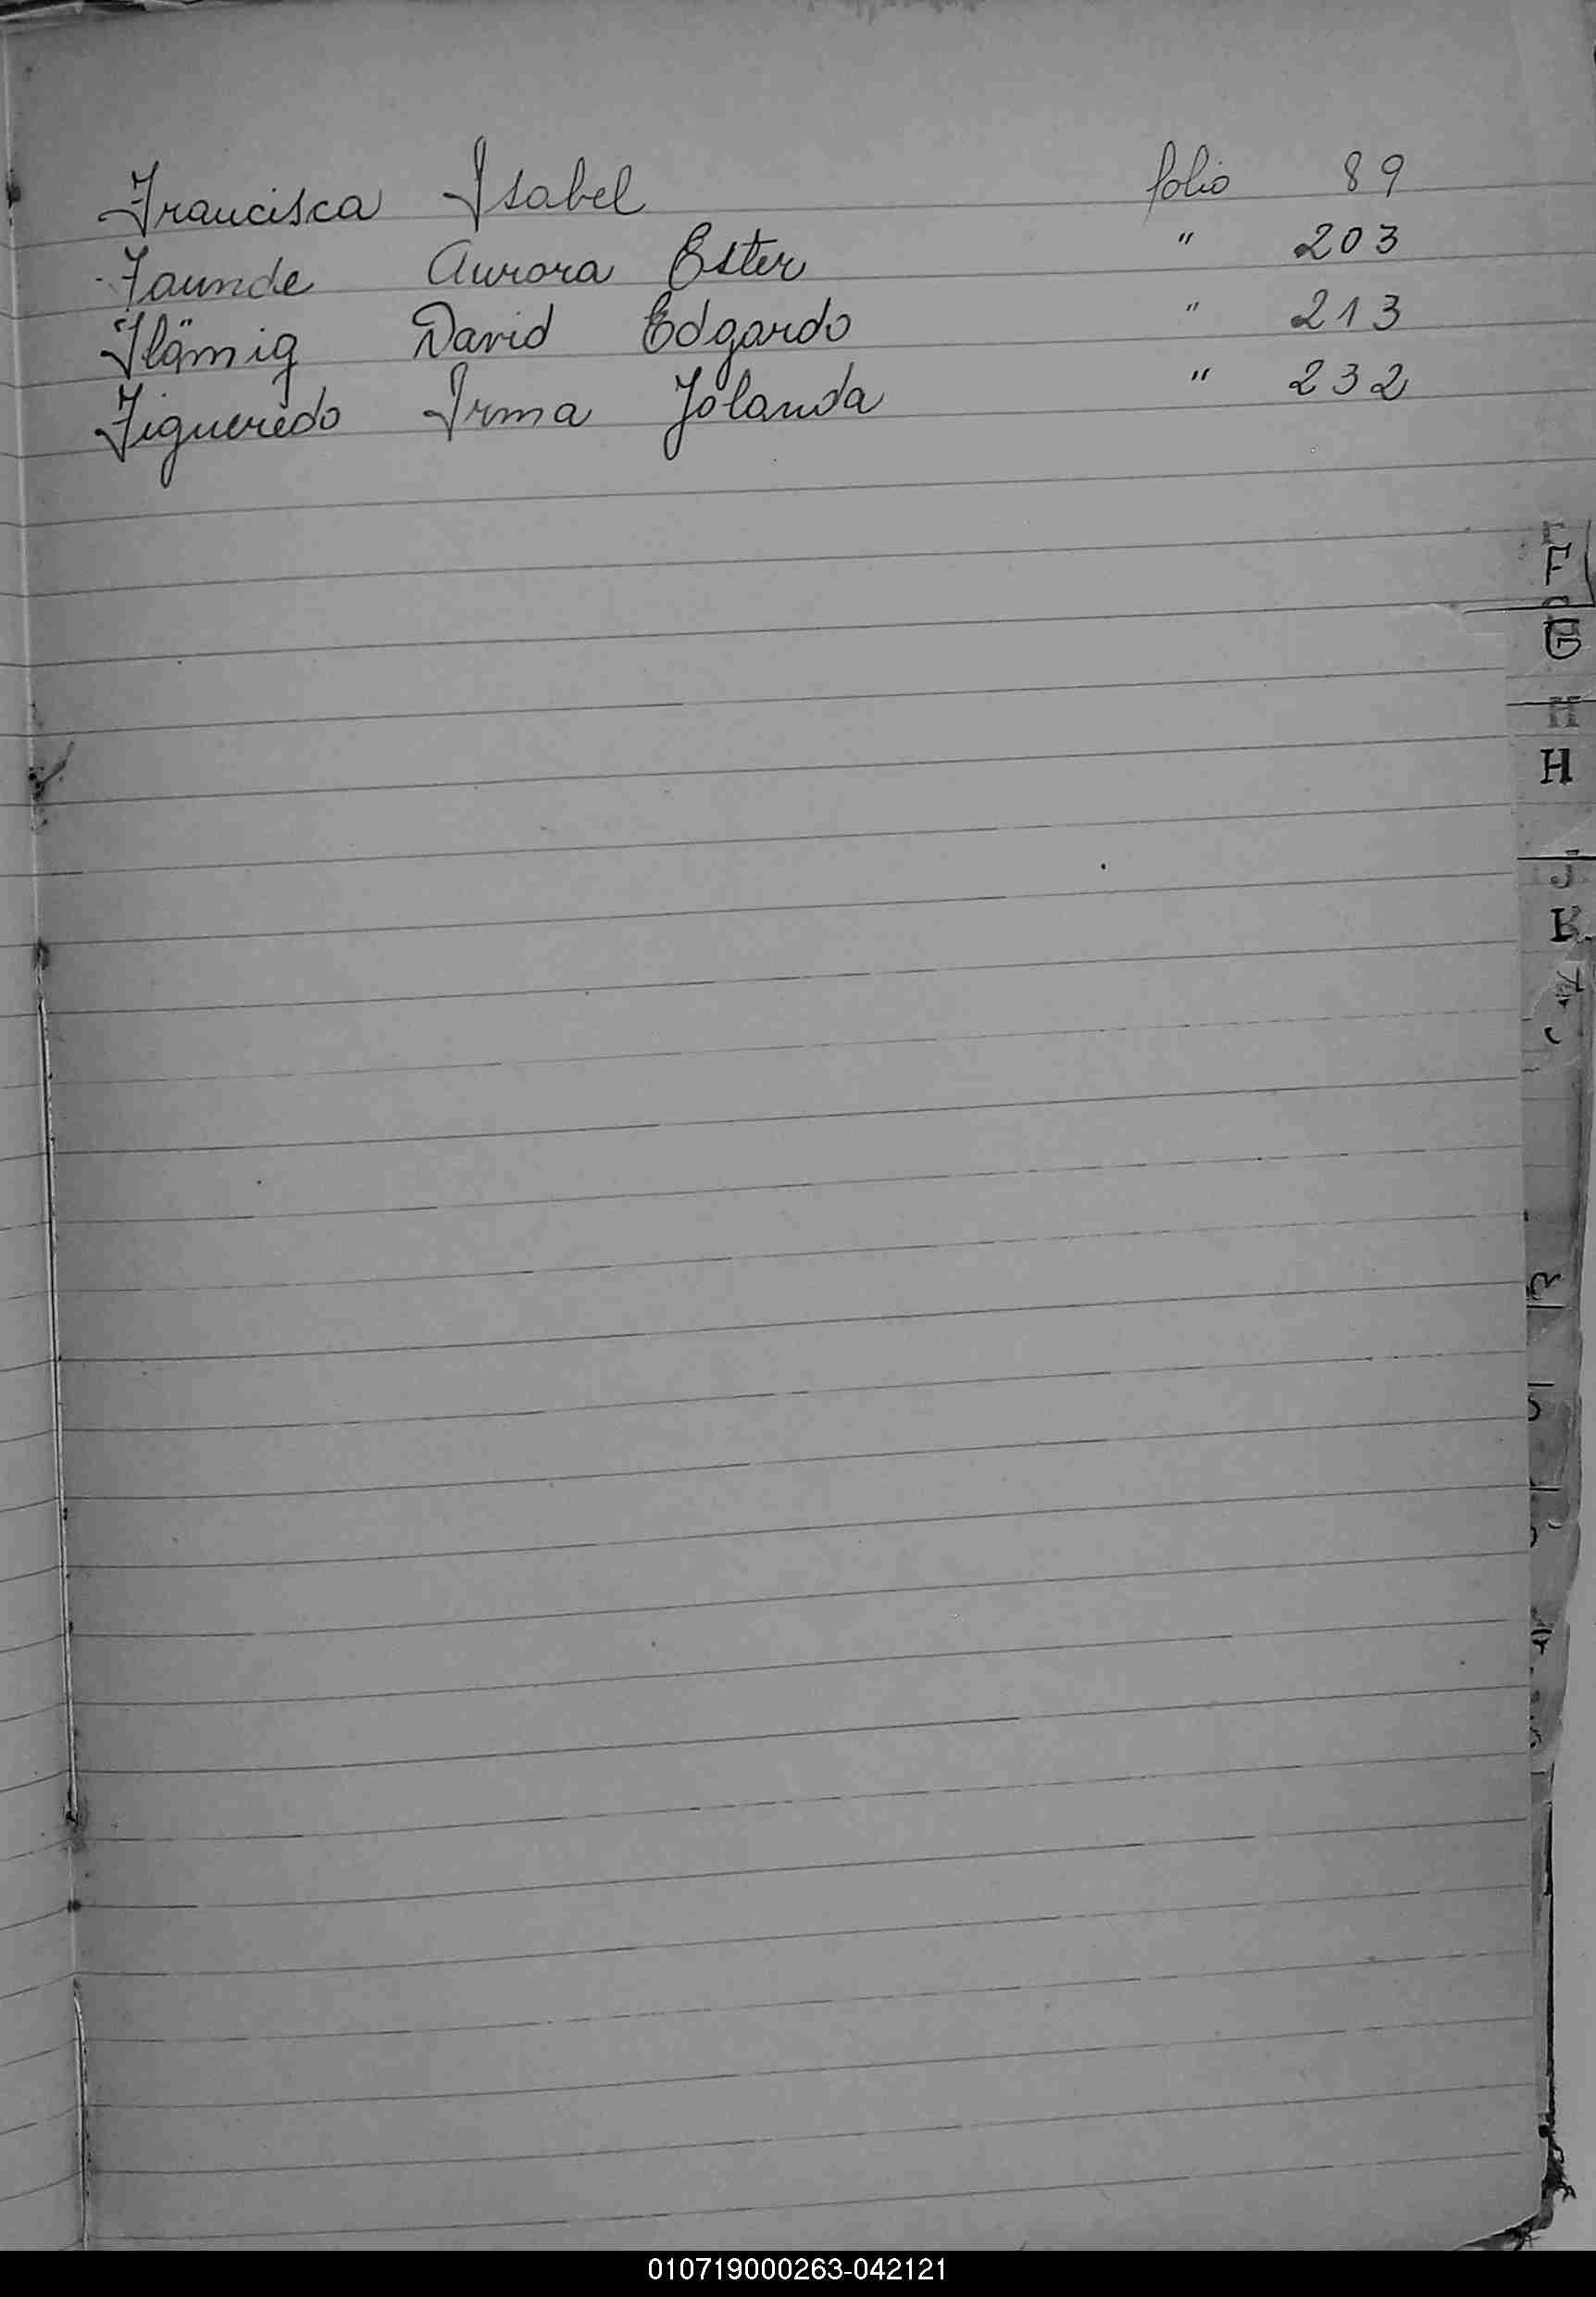 Francisca Isabel folio 89
Faunde Aurora Ester " 203
Flämig David Edgardo " 213
Figueredo Irma Jolanda " 232
F
G
H
H
J
K
010719000263-042121